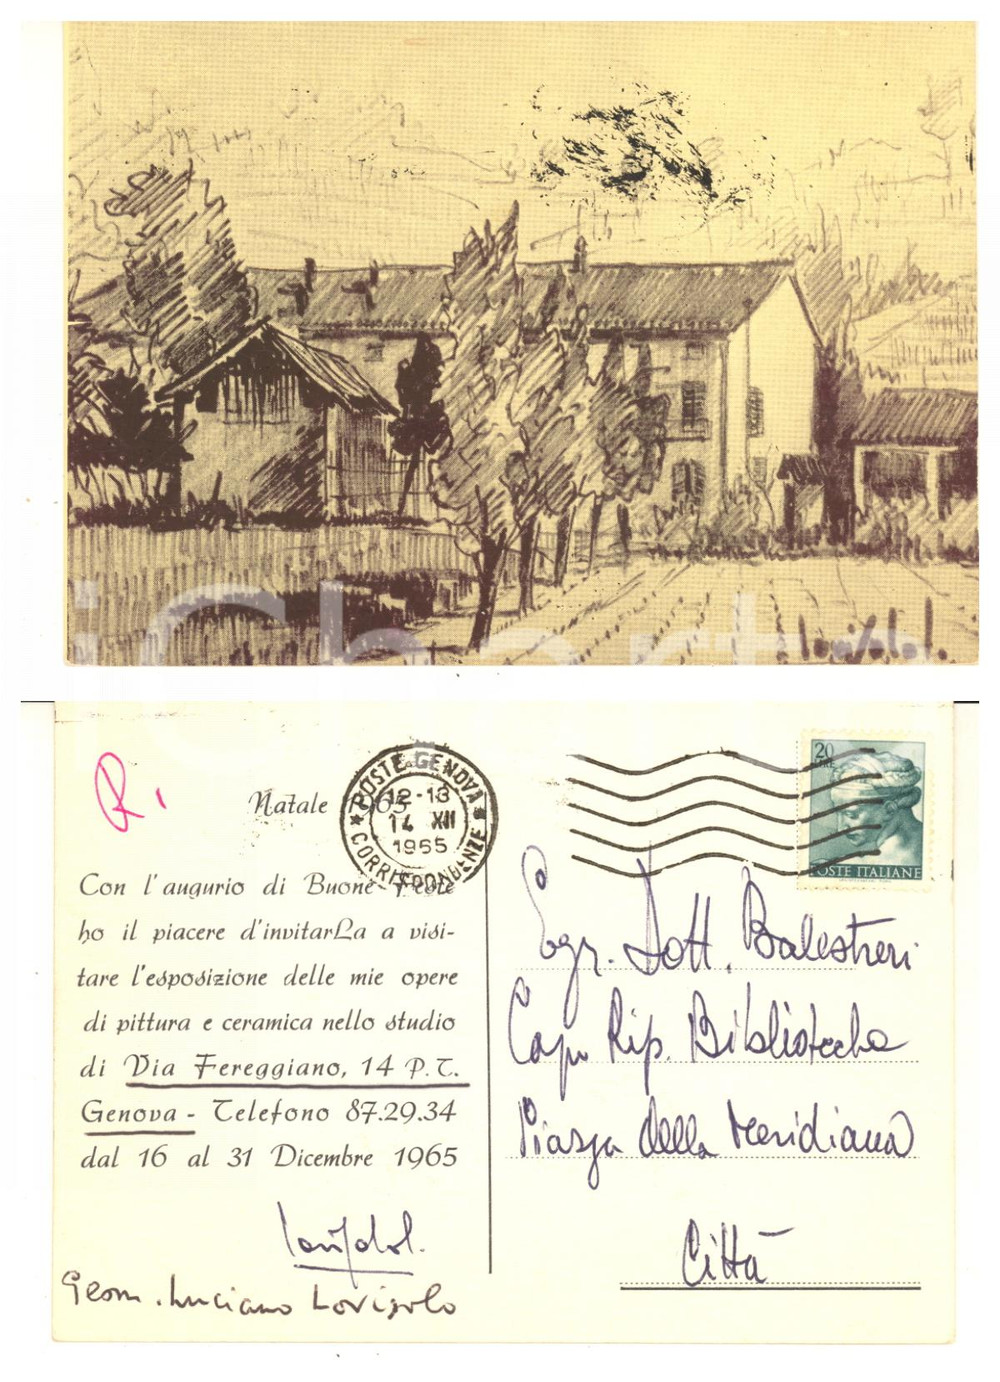 R.
Natale 1965
POSTE GENOVA
12-13
14 XII
1965
CORRISPONDENZE
20
LIRE
POSTE ITALIANE
Con l'augurio di Buone Feste
ho il piacere d'invitarLa a visi-
tare l'esposizione delle mie opere
di pittura e ceramica nello studio
di Via Fereggiano, 14 P.T.
Genova - Telefono 87.29.34
dal 16 al 31 Dicembre 1965
Geom. Luciano Lovisolo
Egr. Dott. Balestreri
Capo Rip. Biblioteche
Piazza della Meridiana
Città